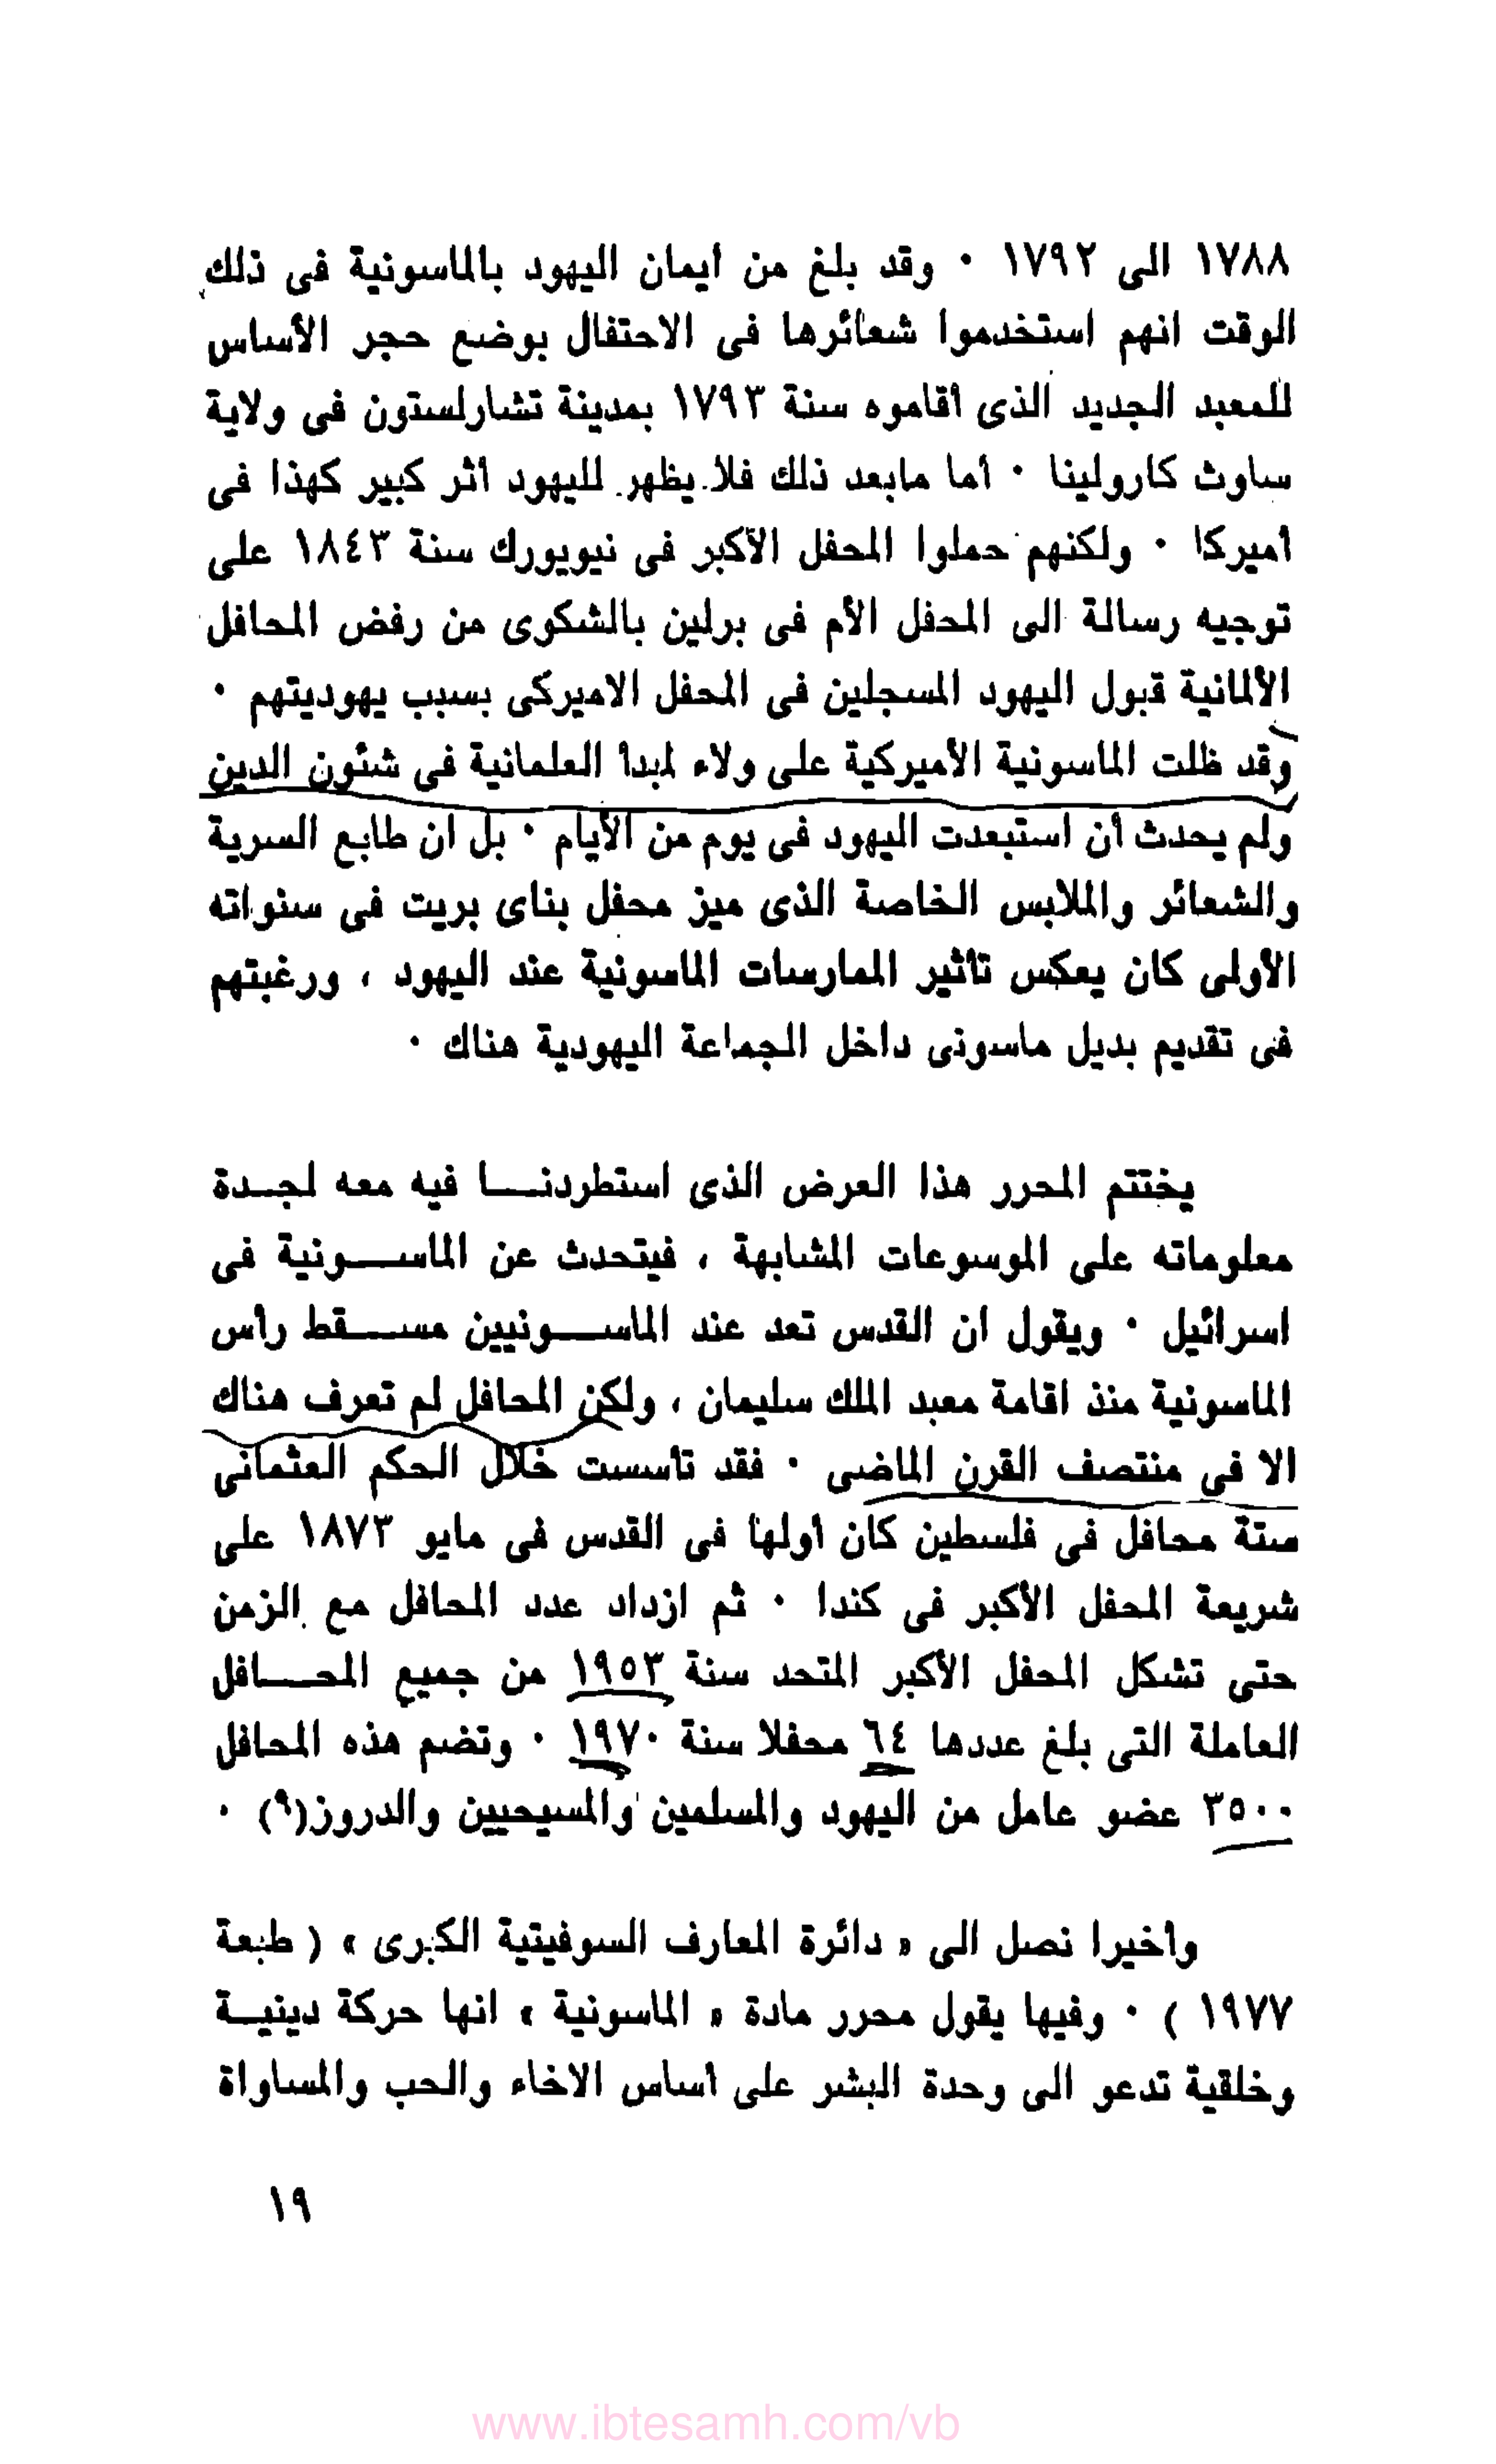 ١٧٨٨ الى ١٧٩٢ ٠ وقد بلغ من ايمان اليهود بالماسونية فى ذلك
الوقت انهم استخدموا شعائرها فى الاحتفال بوضع حجر الأساس
للمعبد الجديد الذى أقاموه سنة ١٧٩٣ بمدينة تشارلستون فى ولاية
ساوث كارولينا ٠ أما مابعد ذلك فلا يظهر لليهود أثر كبير كهذا فى
أميركا ٠ ولكنهم حملوا المحفل الأكبر فى نيويورك سنة ١٨٤٣ على
توجيه رسالة الى المحفل الأم فى برلين بالشكوى من رفض المحافل
الألمانية قبول اليهود المسجلين فى المحفل الاميركى بسبب يهوديتهم ٠
وقد ظلت الماسونية الأميركية على ولاء لمبدأ العلمانية فى شئون الدين
ولم يحدث أن استبعدت اليهود فى يوم من الأيام ٠ بل ان طابع السرية
والشعائر والملابس الخاصة الذى ميز محفل بناى بريت فى سنواته
الأولى كان يعكس تأثير الممارسات الماسونية عند اليهود ، ورغبتهم
فى تقديم بديل ماسونى داخل الجماعة اليهودية هناك ٠
يختتم المحرر هذا العرض الذى استطردنا فيه معه لجدة
معلوماته على الموسوعات المشابهة ، فيتحدث عن الماسونية فى
اسرائيل ٠ ويقول ان القدس تعد عند الماسونيين مسقط رأس
الماسونية منذ اقامة معبد الملك سليمان ، ولكن المحافل لم تعرف هناك
الا فى منتصف القرن الماضى ٠ فقد تأسست خلال الحكم العثمانى
ستة محافل فى فلسطين كان أولها فى القدس فى مايو ١٨٧٣ على
شريعة المحفل الأكبر فى كندا ٠ ثم ازداد عدد المحافل مع الزمن
حتى تشكل المحفل الأكبر المتحد سنة ١٩٥٣ من جميع المحافل
العاملة التى بلغ عددها ٦٤ محفلا سنة ١٩٧٠ ٠ وتضم هذه المحافل
٣٥٠٠ عضو عامل من اليهود والمسلمين والمسيحيين والدروز(٩) ٠
وأخيرا نصل الى « دائرة المعارف السوفيتية الكبرى » ( طبعة
١٩٧٧ ) ٠ وفيها يقول محرر مادة « الماسونية » انها حركة دينية
وخلقية تدعو الى وحدة البشر على أساس الاخاء والحب والمساواة
١٩
www.ibtesamh.com/vb